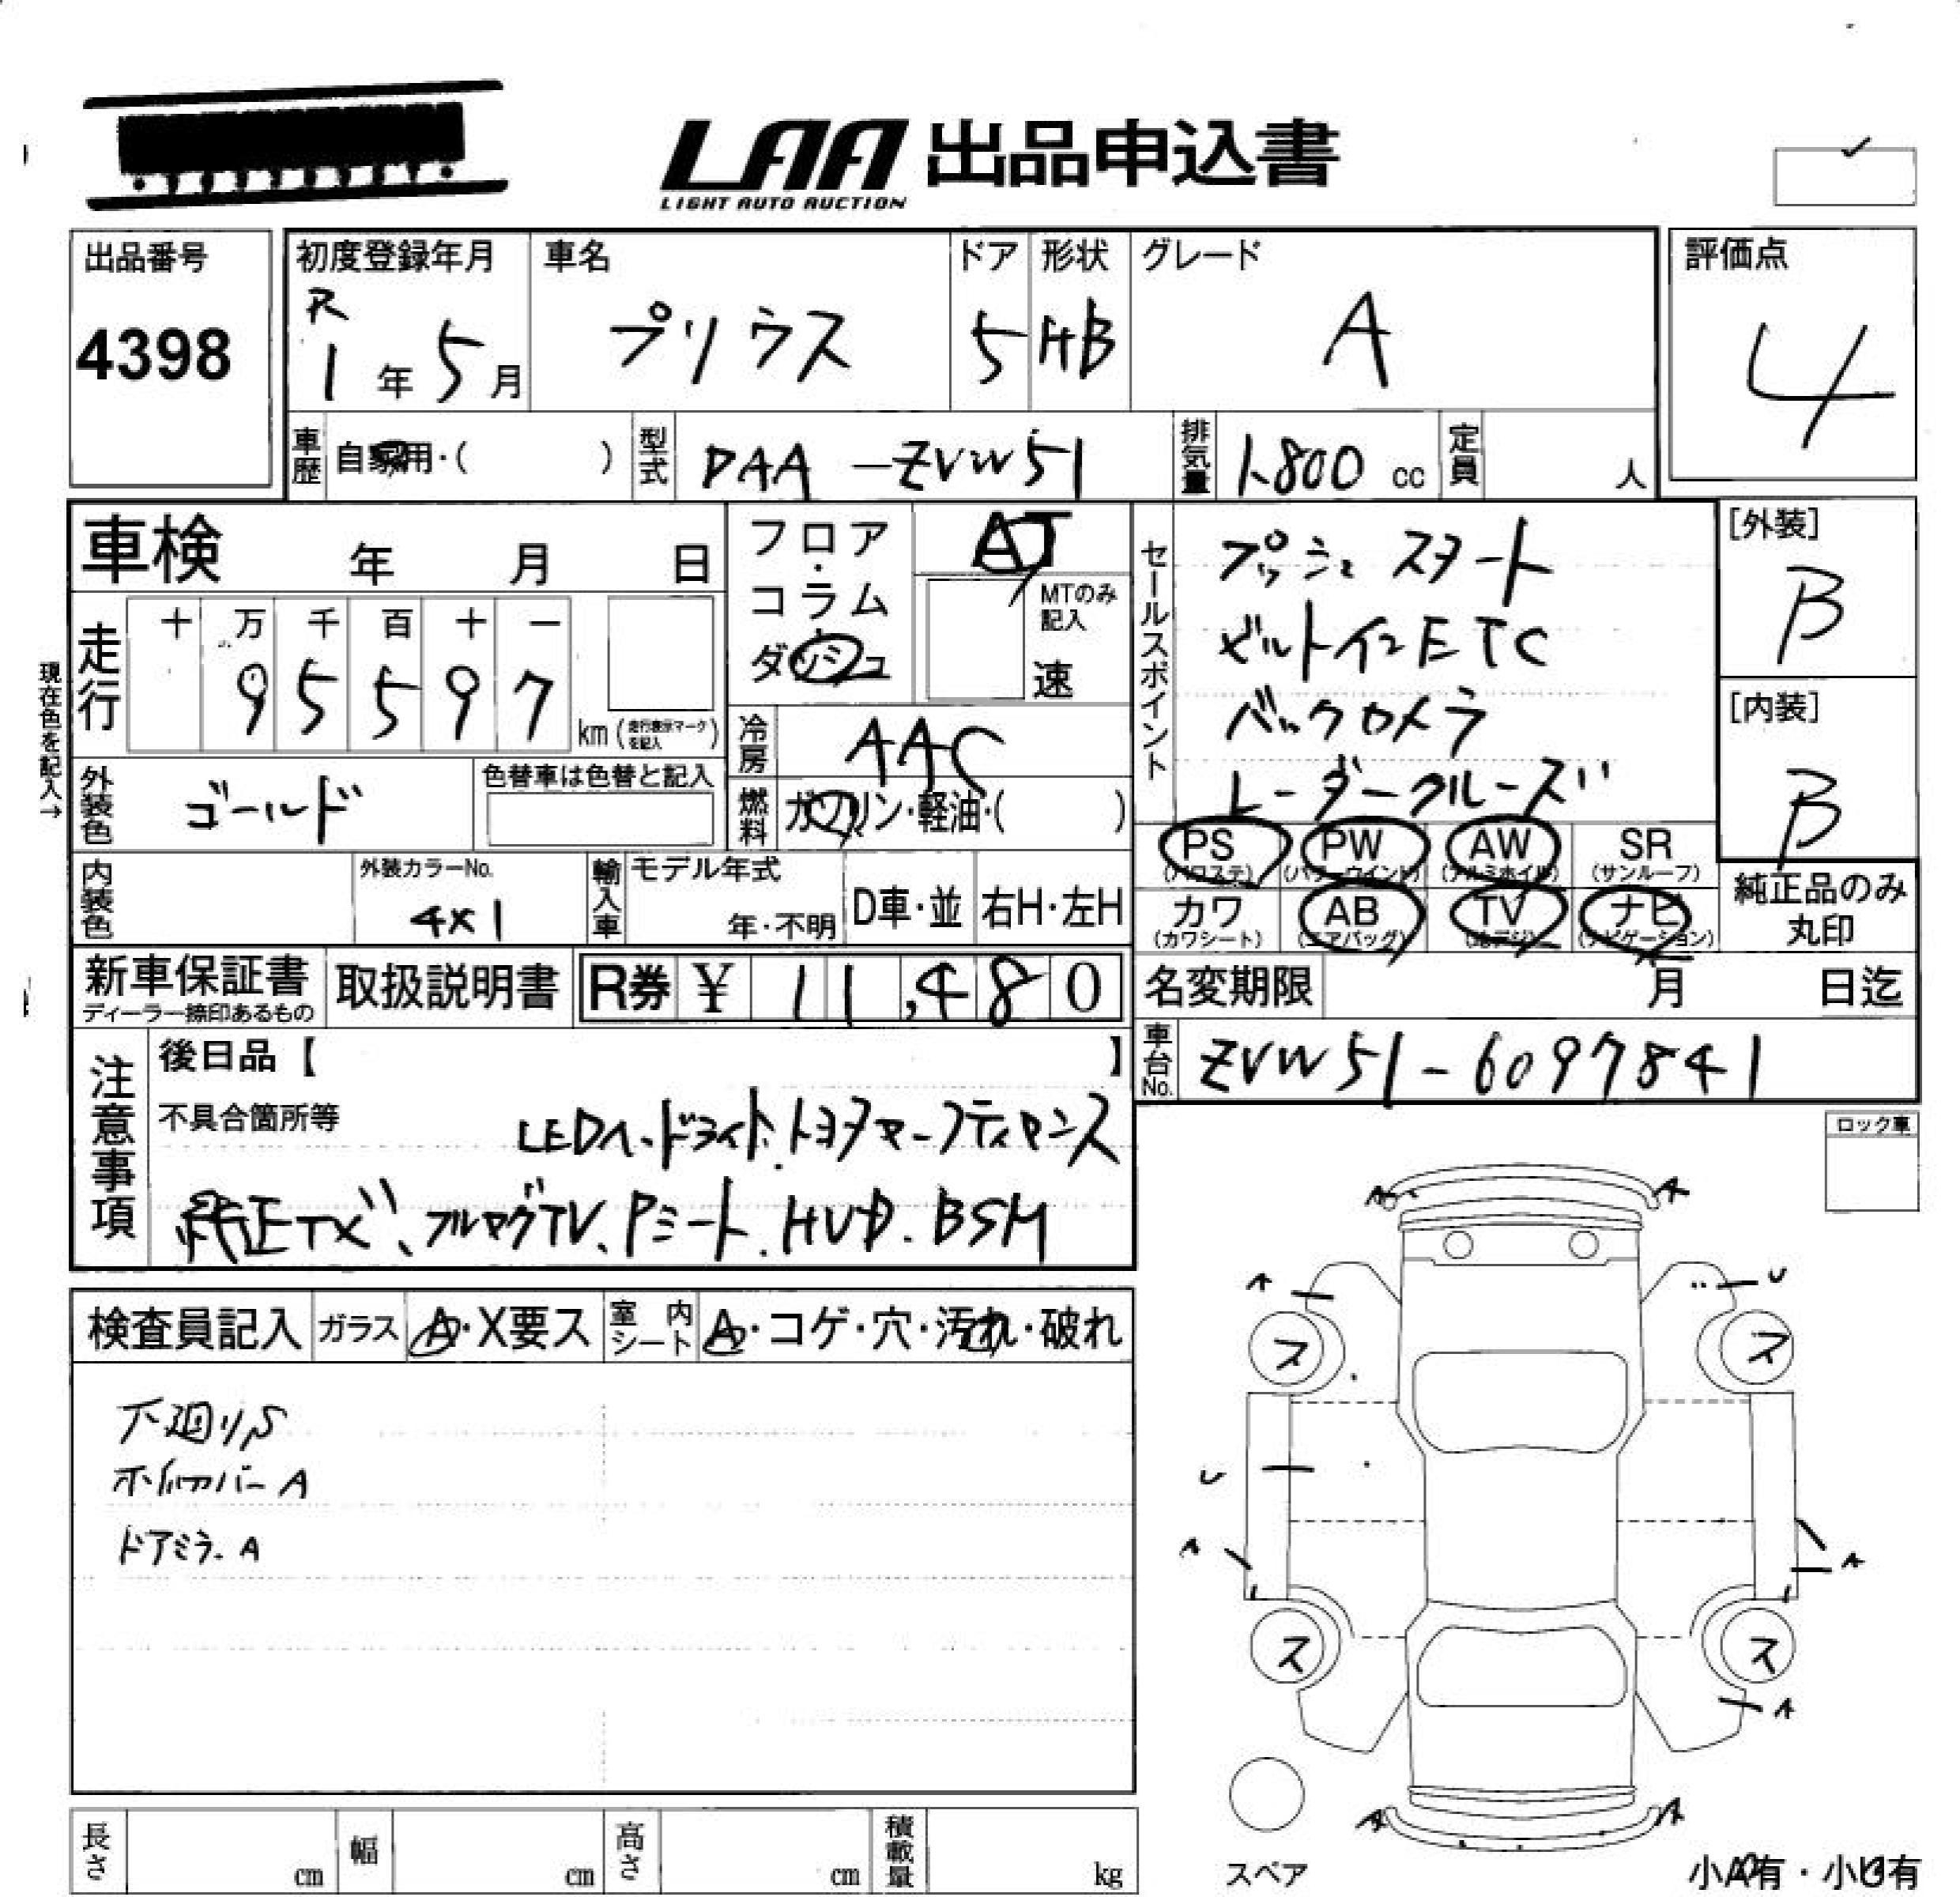 LAA 出品申込書
LIGHT AUTO AUCTION
出品番号
4398
初度登録年月
R
1年5月
車名
プリウス
ドア
5
形状
HB
グレード
A
評価点
4
車歴
自家用・( )
型式
DAA-ZVW51
排気量
1.800 cc
定員
人
車検 年 月 日
フロア・コラム
ダッシュ
AT
MTのみ記入
速
走行
十 万 千 百 十 一
9 5 5 9 7
km(走行表示マークを記入)
現在色を記入→
外装色
ゴールド
色替車は色替と記入
冷房
AAC
燃料
ガソリン・軽油・( )
内装色
外装カラーNo.
4X1
輸入車
モデル年式
年・不明
D車・並
右H・左H
セールスポイント
プッシュスタート
ビルトインETC
バックカメラ
レーダークルーズ
[外装]
B
[内装]
B
PS
(パワステ)
PW
(パワーウインド)
AW
(アルミホイル)
SR
(サンルーフ)
カワ
(カワシート)
AB
(エアバッグ)
TV
(地デジ)
ナビ
(ナビゲーション)
純正品のみ
丸印
新車保証書
ディーラー捺印あるもの
取扱説明書
R券 ¥ 11,480
名変期限 月 日迄
車台No.
ZVW51-6097841
注意事項
後日品【 】
不具合箇所等
LEDヘッドライト、トヨタセーフティセンス
純正ナビ、フルセグTV、Pシート、HUD、BSM
ロック車
検査員記入
ガラス
A・X要ス
室内シート
A・コゲ・穴・汚れ・破れ
下廻りS
ホイルカバーA
ドアミラーA
A A
A U
ス ス
U
A A
ス ス
A
A A
スペア
小A有・小U有
長さ cm
幅 cm
高さ cm
積載量 kg